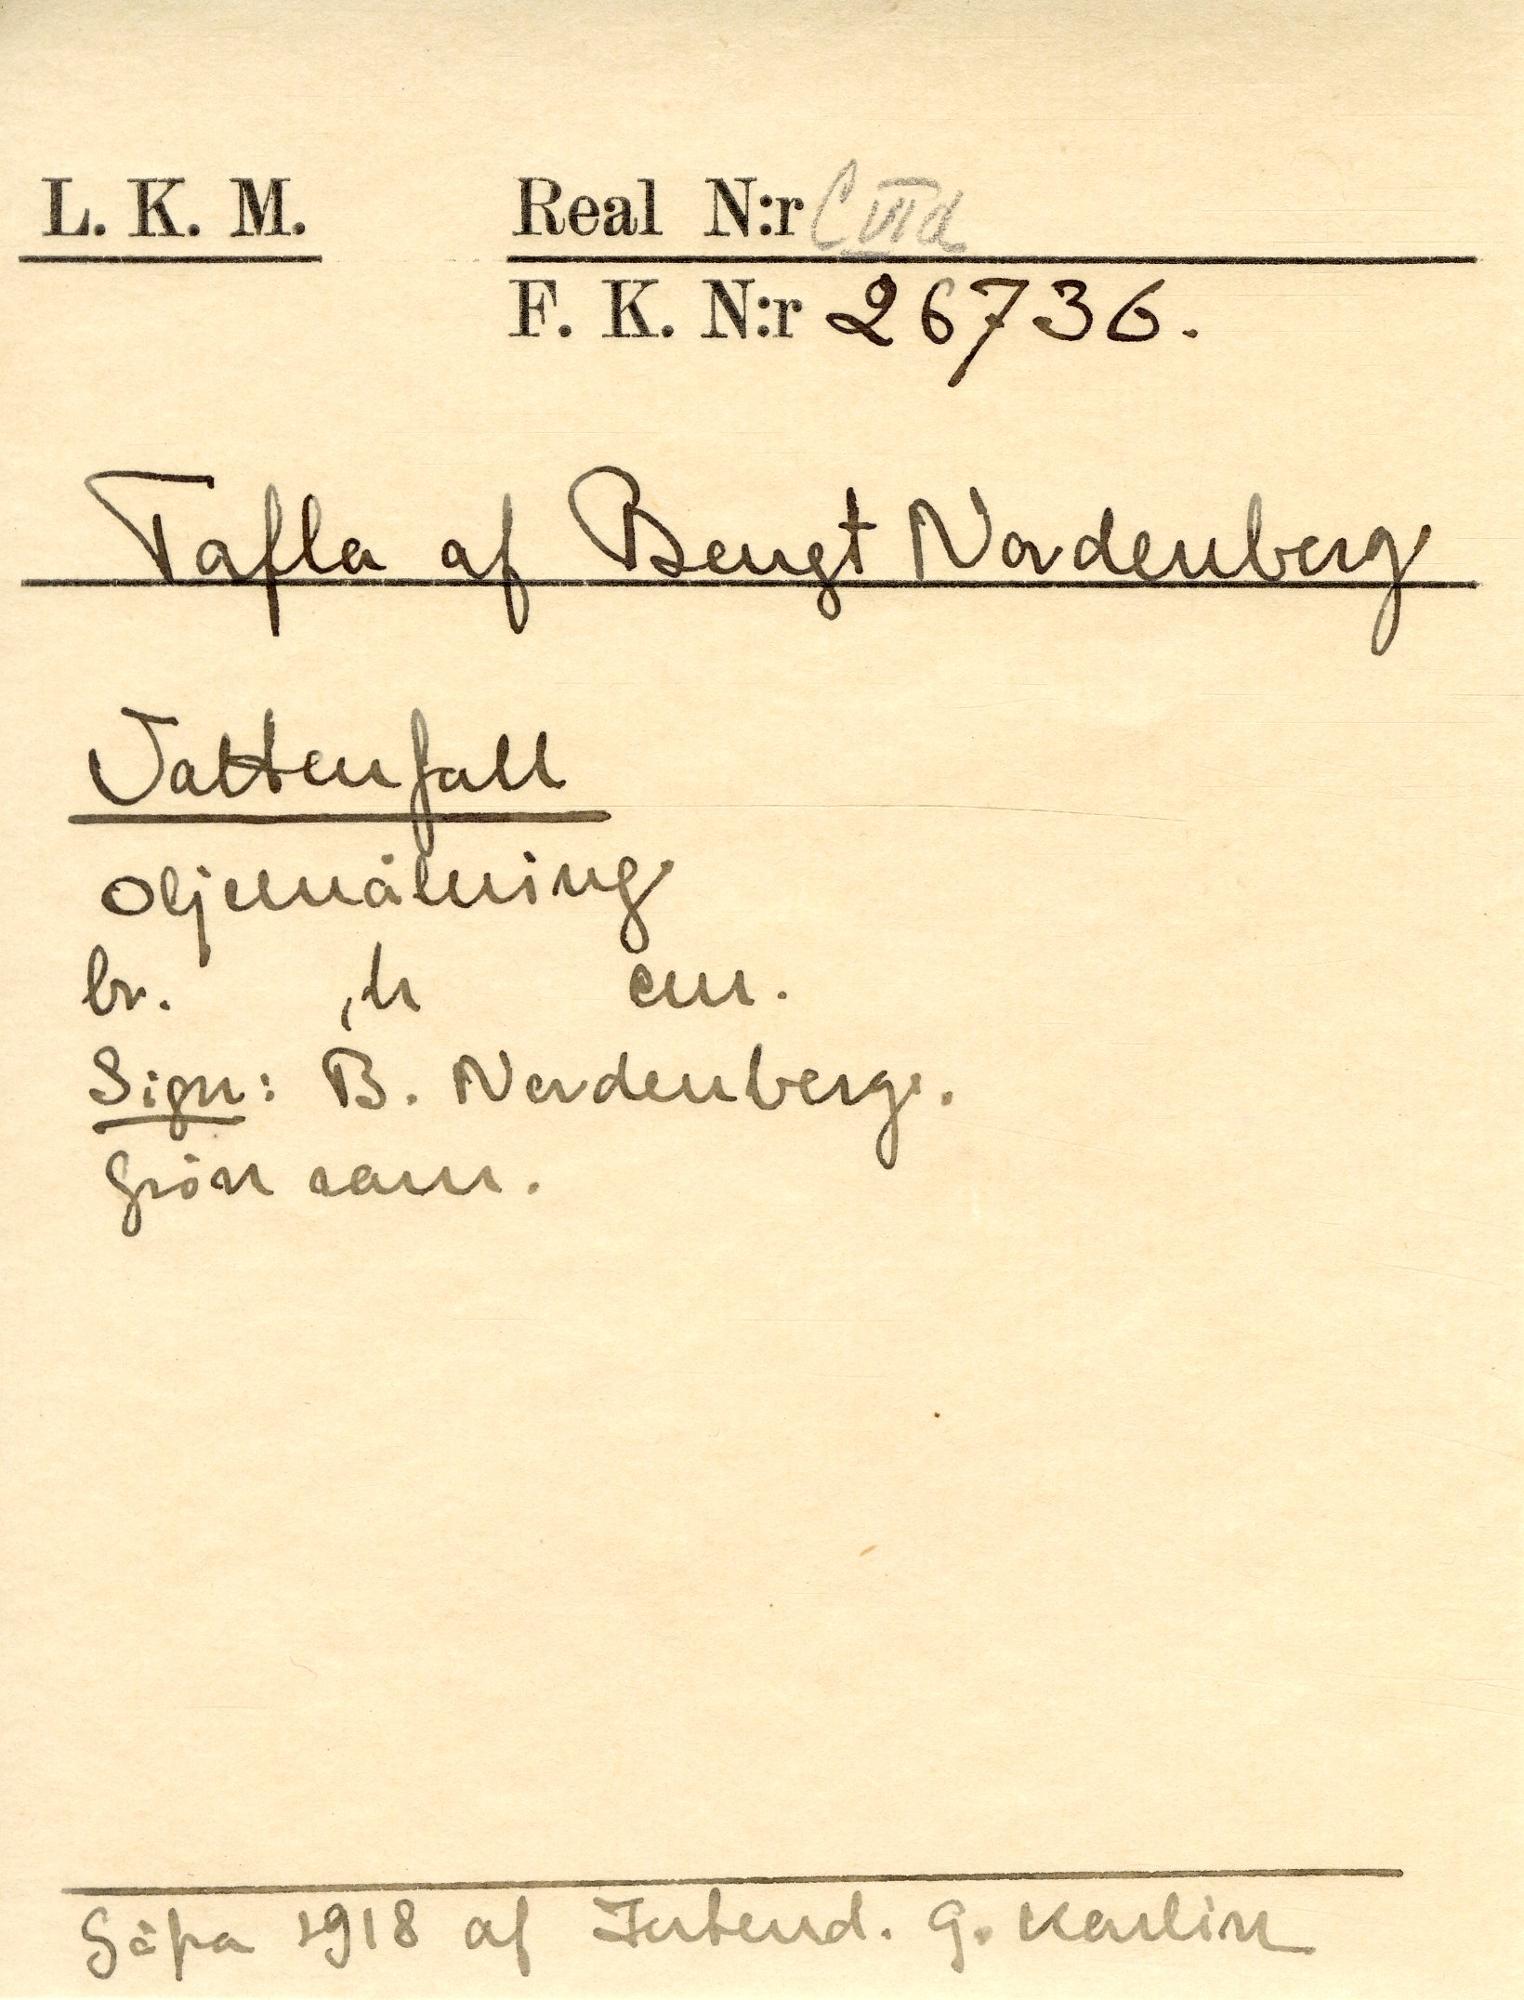 L. K. M. Real N:r C VII d
F. K. N:r 26736.
Tafla af Bengt Nordenberg
Vattenfall
Oljemålning
br. , h cm.
Sign: B. Nordenberg.
Grön ram.
Gåfva 1918 af Intend. G. Karlin